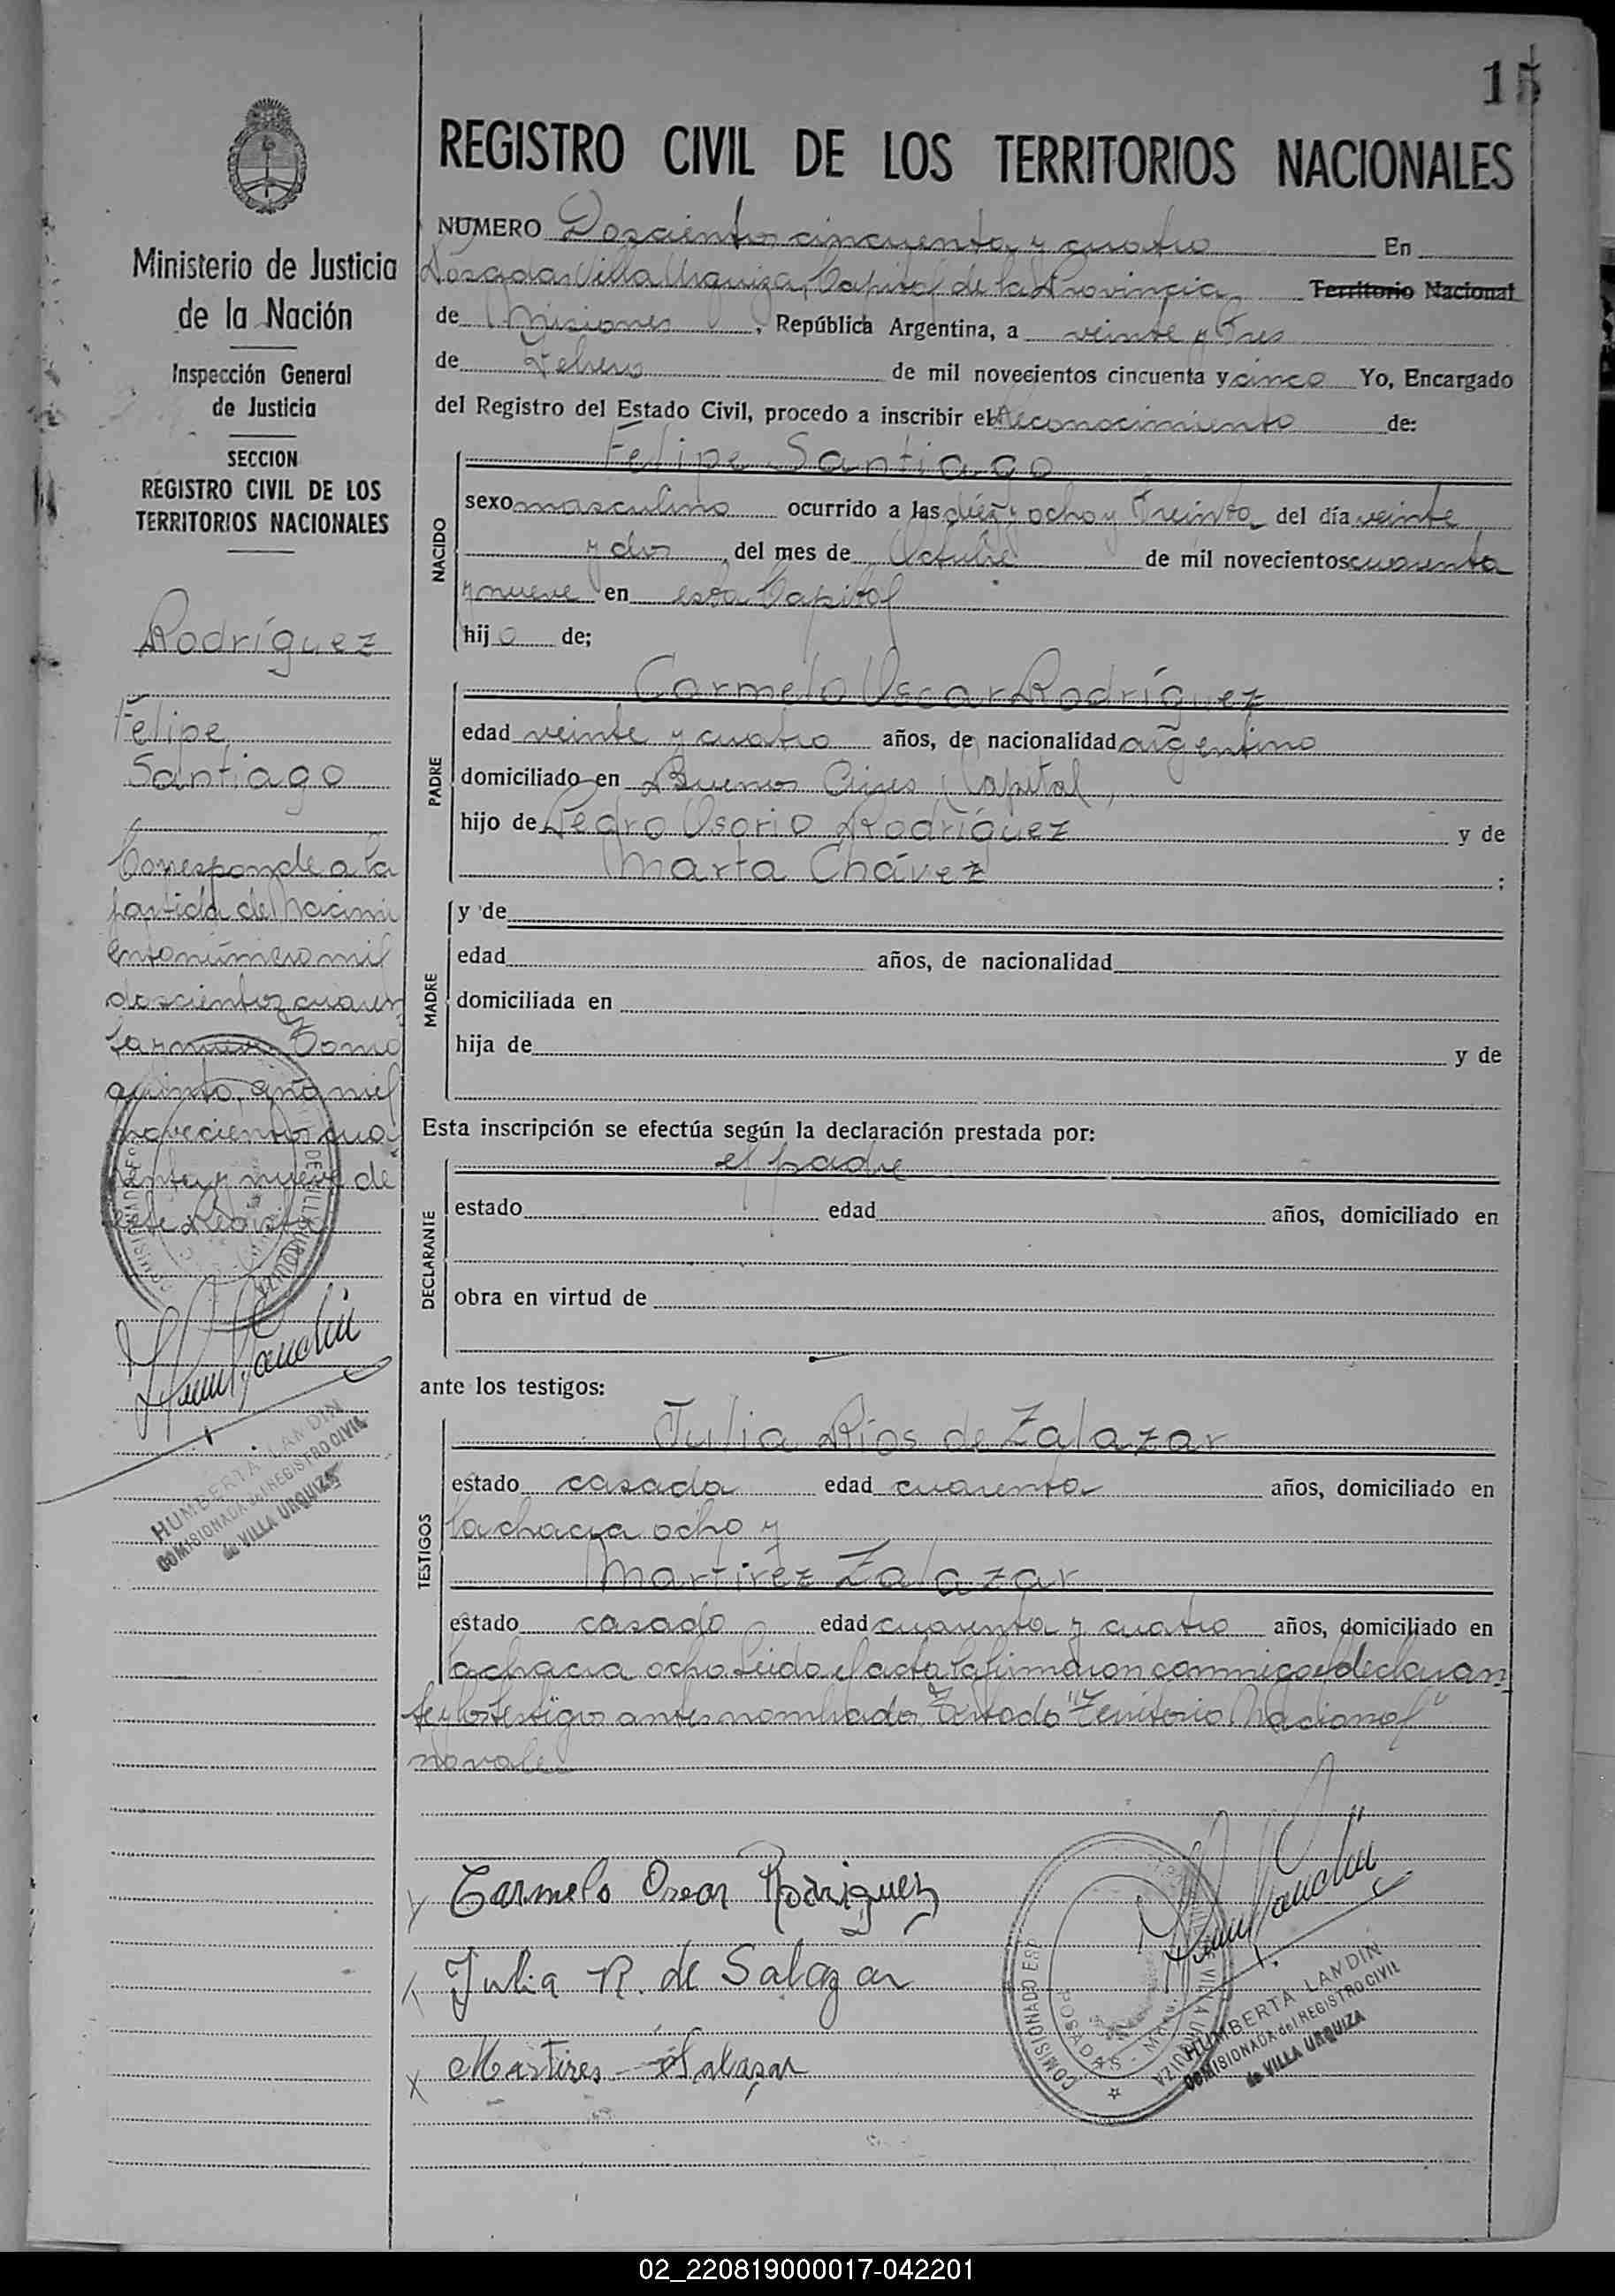 15
REGISTRO CIVIL DE LOS TERRITORIOS NACIONALES
Ministerio de Justicia
de la Nación
Inspección General
de Justicia
SECCION
REGISTRO CIVIL DE LOS
TERRITORIOS NACIONALES
Rodríguez
Felipe
Santiago
Corresponde a la
partida de Nacimi
ento número mil
doscientos cuaren
ta y nueve Tomo
quinto, año mil
novecientos cua
renta y nueve de
este Registro
HUMBERTA LANDIN
COMISIONADA del REGISTRO CIVIL
de VILLA URQUIZA
NUMERO Doscientos cincuenta y cuatro En
Posadas Villa Urquiza, Capital de la Provincia Territorio Nacional
de Misiones, República Argentina, a veinte y tres
de Febrero de mil novecientos cincuenta y cinco Yo, Encargado
del Registro del Estado Civil, procedo a inscribir el Reconocimiento de:
NACIDO
Felipe Santiago
sexo masculino ocurrido a las diez y ocho y treinta del día veinte
y dos del mes de Octubre de mil novecientos cuarenta
y nueve en esta Capital
hijo de;
PADRE
Carmelo Oscar Rodríguez
edad veinte y cuatro años, de nacionalidad argentino
domiciliado en Buenos Aires Capital,
hijo de Pedro Osorio Rodríguez y de
Marta Chávez ;
MADRE
y de
edad años, de nacionalidad
domiciliada en
hija de y de
Esta inscripción se efectúa según la declaración prestada por:
DECLARANTE
el padre
estado edad años, domiciliado en
obra en virtud de
ante los testigos:
TESTIGOS
Julia Ríos de Zalazar
estado casada edad cuarenta años, domiciliado en
la chacra ocho y
Martirez Zalazar
estado casado edad cuarenta y cuatro años, domiciliado en
la chacra ocho. Leído el acta la firmaron conmigo el declaran
te y los testigos antes nombrados. Testado "Territorio Nacional"
no vale
Carmelo Oscar Rodriguez
Julia R. de Salazar
Martires Salazar
COMISIONADO ESP. VILLA URQUIZA
POSADAS - Mnes.
HUMBERTA LANDIN
COMISIONADA del REGISTRO CIVIL
de VILLA URQUIZA
02_220819000017-042201